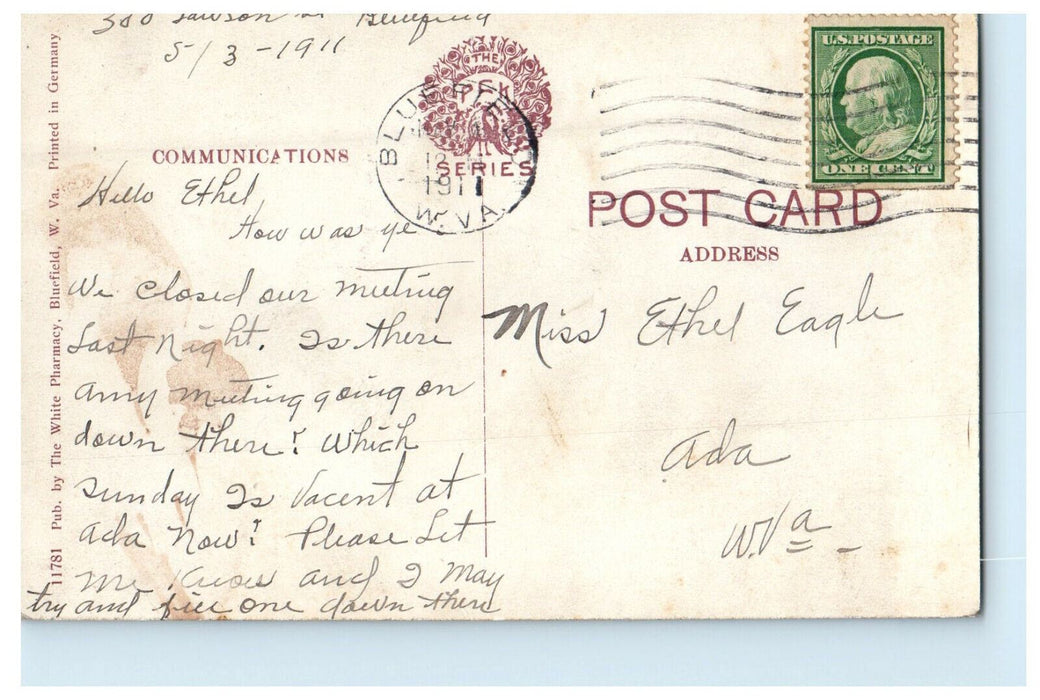 5/3-1911
COMMUNICATIONS
Hello Ethel,
How was ye
We closed our meeting
Last night. Is there
any meeting going on
down there? Which
sunday Is Vacent at
Ada Now? Please Let
me Know and I May
try and fill one down there
11781 Pub. by The White Pharmacy, Bluefield, W. Va. Printed in Germany
THE
PCK
SERIES
BLUEFIELD
1911
W. VA.
U.S. POSTAGE
ONE CENT
POST CARD
ADDRESS
Miss Ethel Eagle
Ada
W.Va